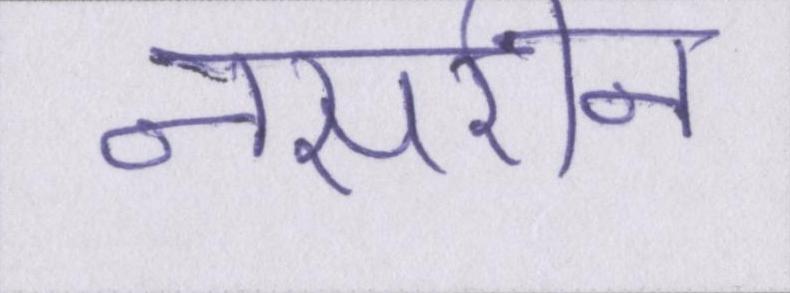 नसरीन